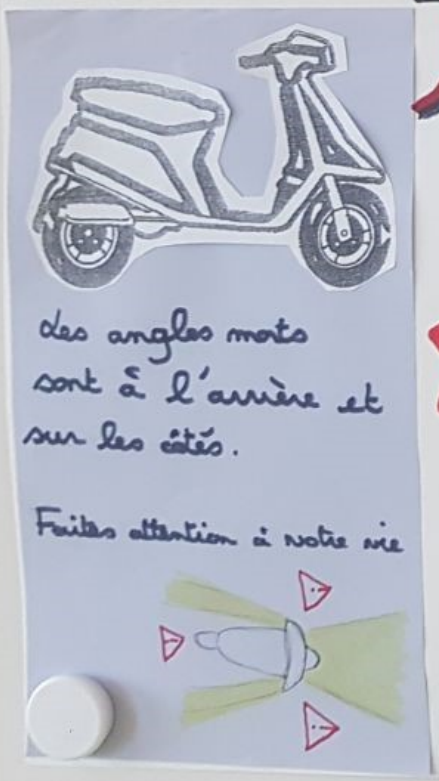 Les angles morts
sont à l'arrière et
sur les côtés.
Faites attention à notre vie